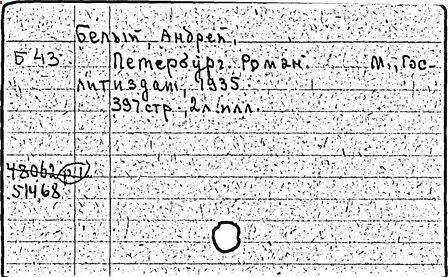 Белый, Андрей,
Б 43 Петербург. Роман. М., Гос-
литиздат, 1935.
397 стр., 2 л. илл.
48062
51468